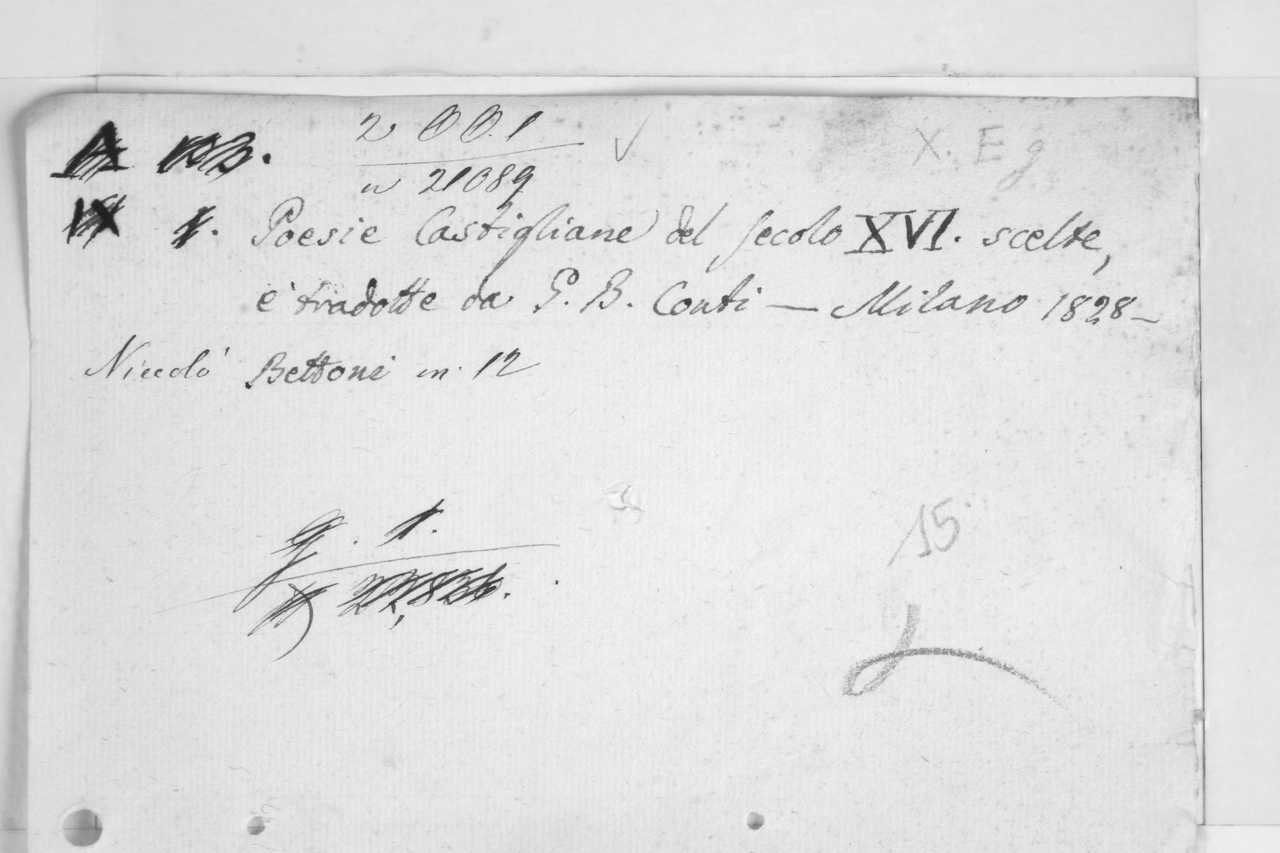 2 OO.1
X. E g
n 21089
IX 1. Poesie Castigliane del secolo XVI. scelte,
e' tradotte da G. B. Conti — Milano 1828-
Niccolò Bettoni in 12
15.